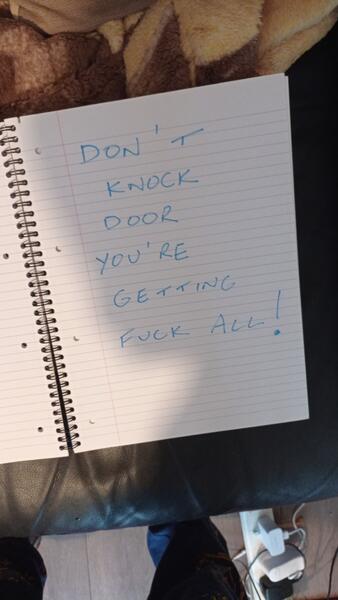 DON'T
KNOCK
DOOR
YOU'RE
GETTING
FUCK ALL!